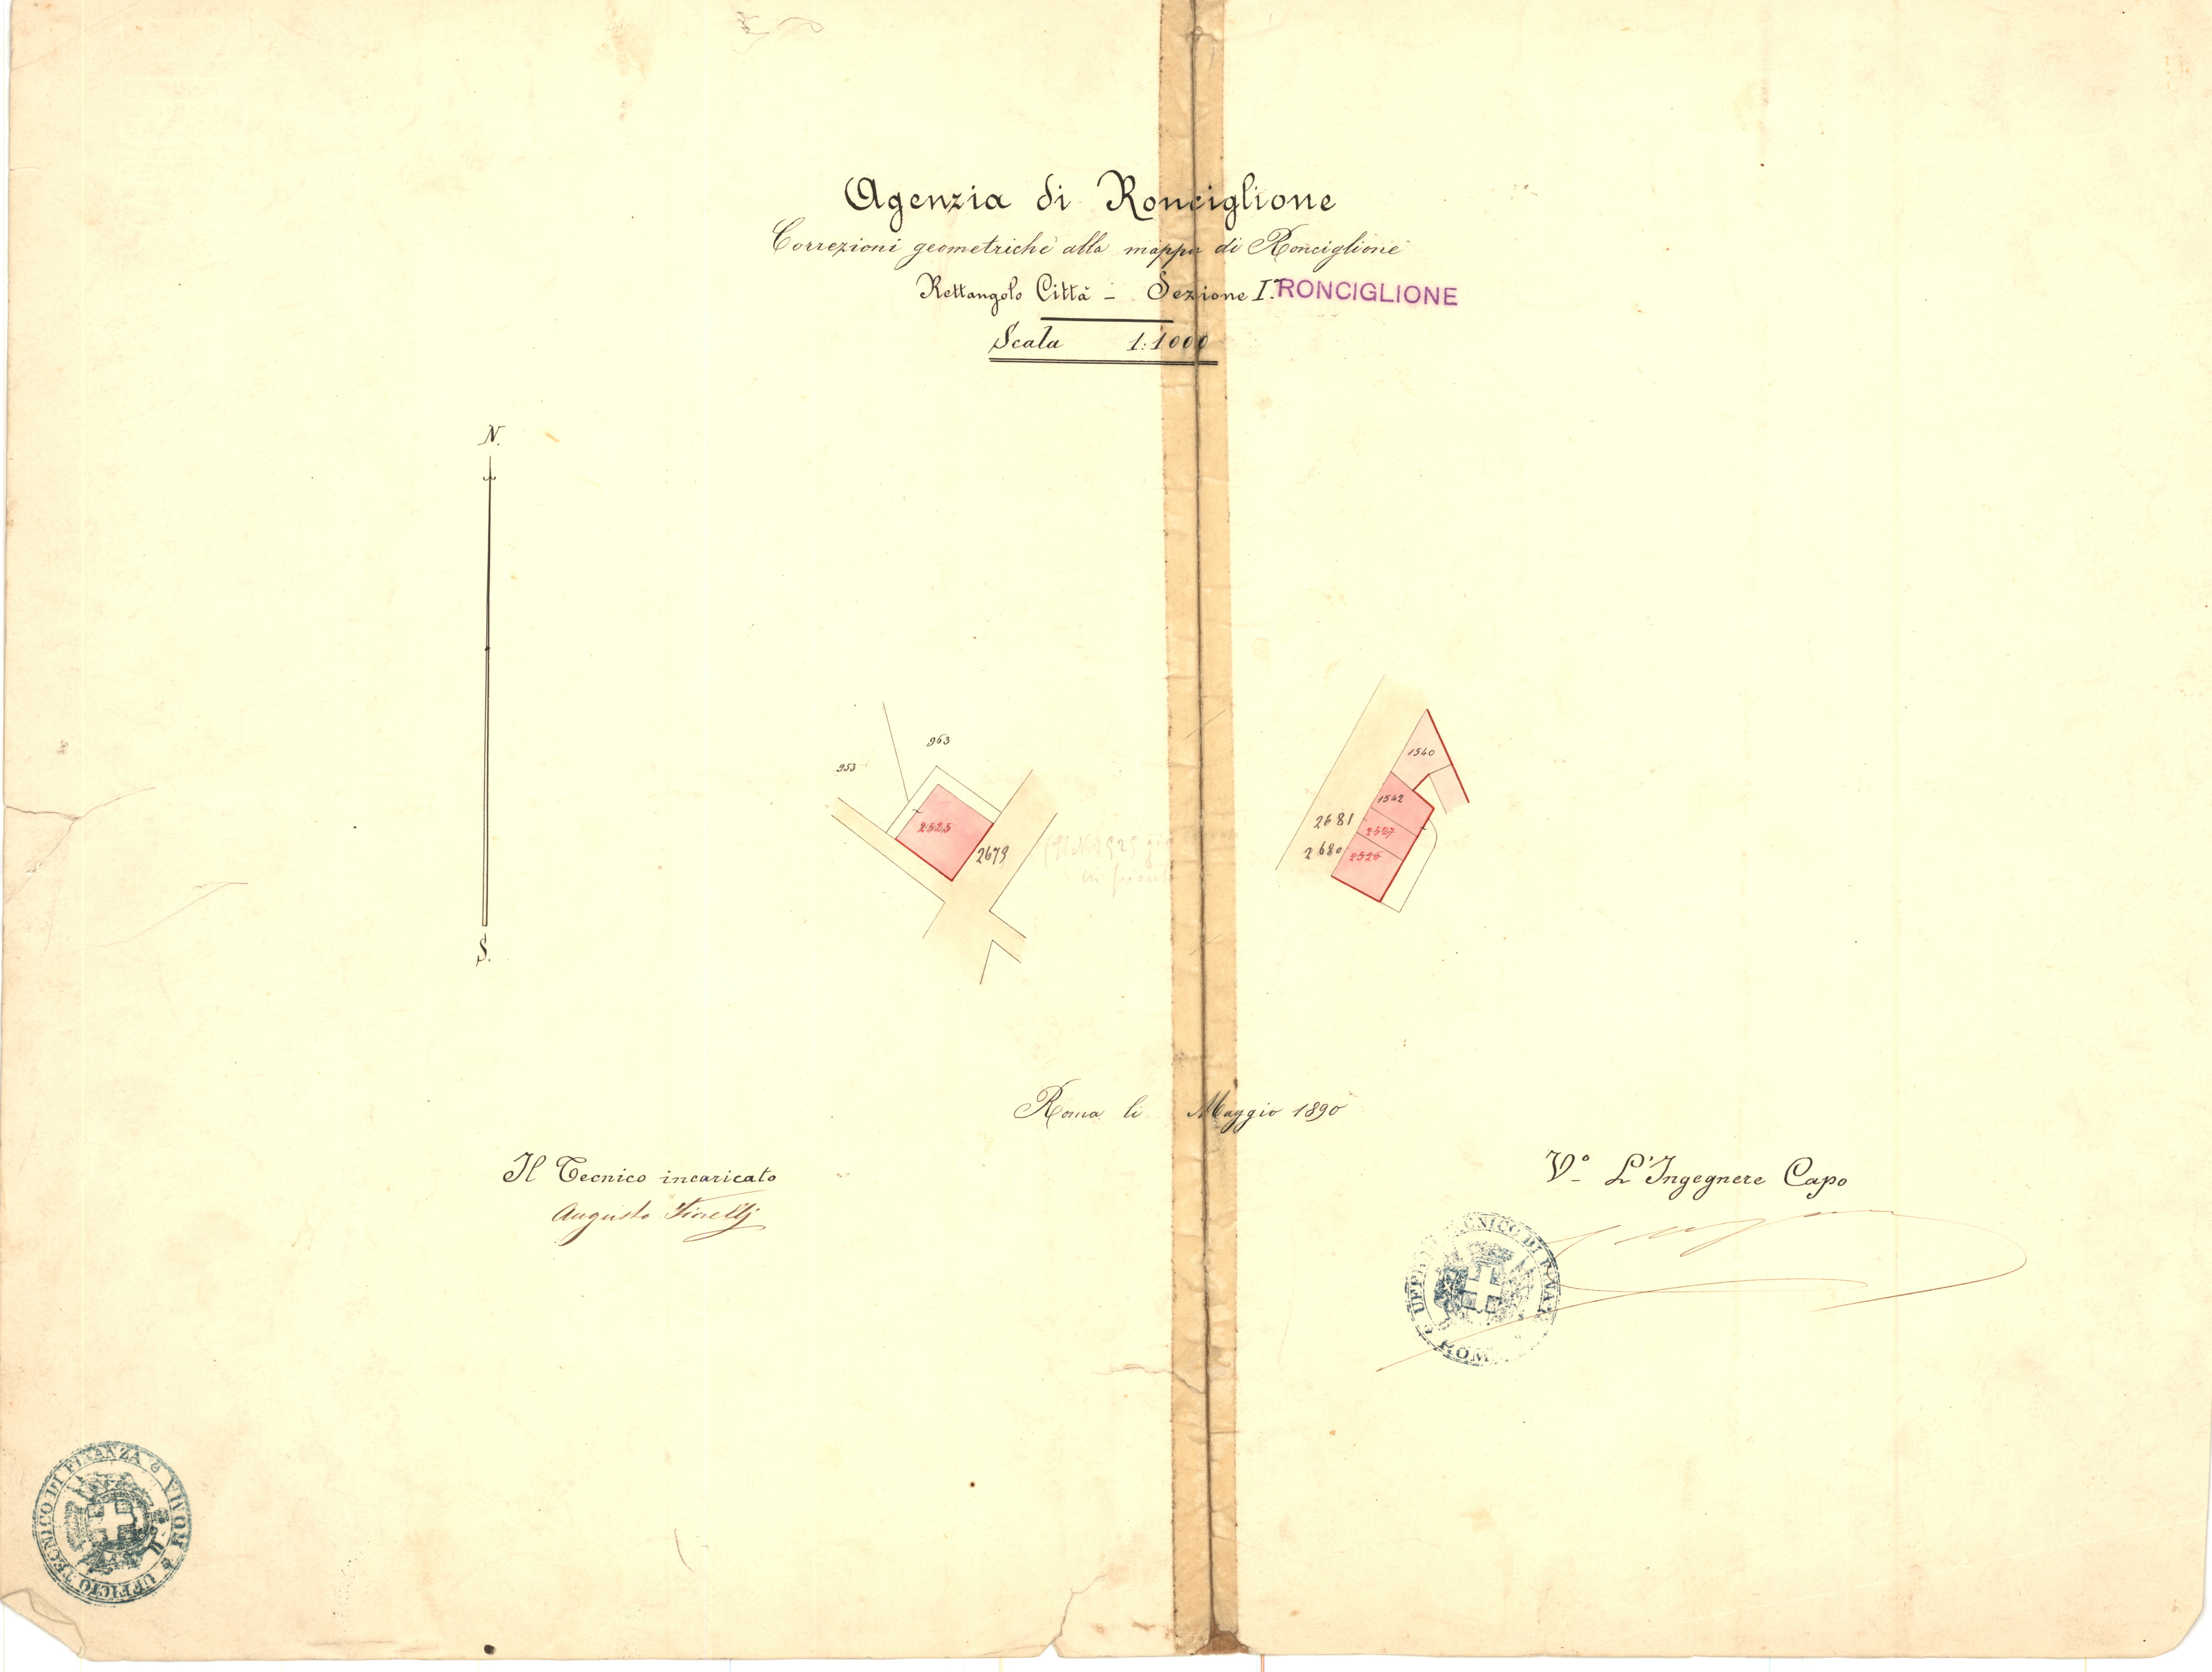 Agenzia di Ronciglione
Correzioni geometriche alla mappa di Ronciglione
Rettangolo Città - Sezione Iª RONCIGLIONE
Scala 1:1000
N.
S.
963
953
2525
2679
1540
1542
2681
2527
2680
2526
Roma li Maggio 1890
Il Tecnico incaricato
Augusto
Vº L'Ingegnere Capo
UFFICIO TECNICO DI FINANZA
ROMA
UFFICIO TECNICO DI FINANZA
ROMA